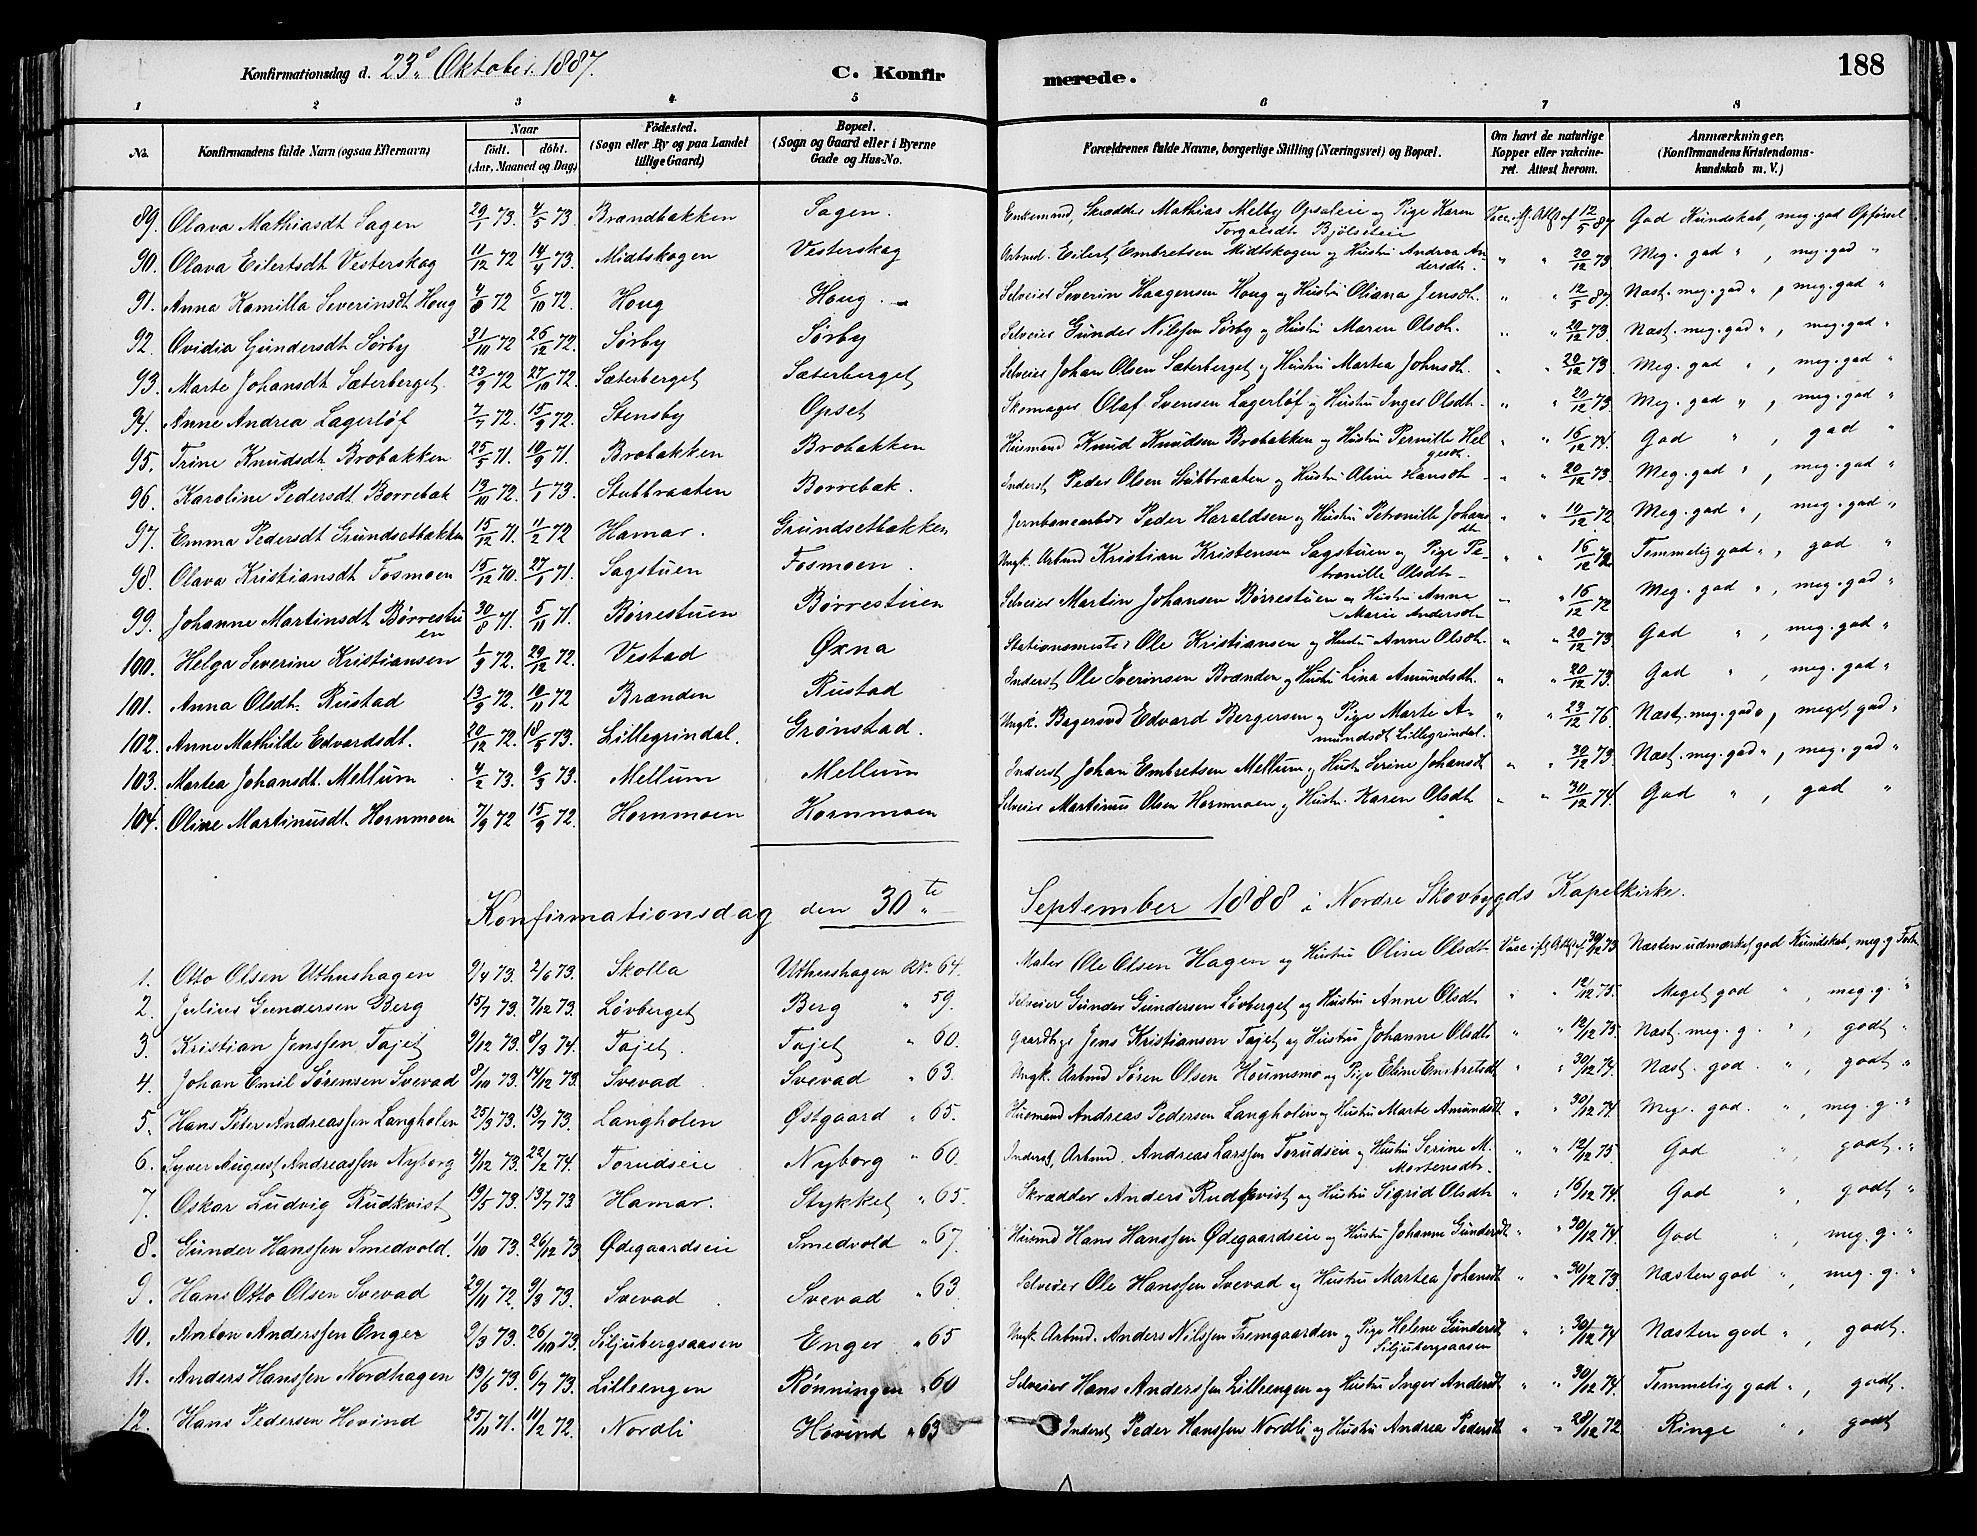 Konfirmationsdag d. 23d Oktober 1887. C. Konfirmerede. 188
1 2 3 4 5 6 7 8
No. Konfirmandens fulde Navn (ogsaa Efternavn) Naar födt. döbt. (Aar, Maaned og Dag) Födested. (Sogn eller By og paa Landet tillige Gaard) Bopæl. (Sogn og Gaard eller i Byerne Gade og Hus-No. Forældrenes fulde Navne, borgerlige Stilling (Næringsvei) og Bopæl. Om havt de naturlige Kopper eller vakcineret. Attest herom. Anmærkninger. (Konfirmandens Kristendomskundskab m. V.)
89. Olava Mathiasdt Sagen 29/1 73. 4/5 73. Brændbakken Sagen. Enkemand, Skrædder Mathias Melby Opsaleie og Pige Karen Torgalsdt Bjölseteie 12/5 87 God Kundskab, meg. god Opförsel
90. Olava Eilertsdt Vesterskog 11/12 72 14/4 73. Midtskogen Vesterskog Arbmd. Eilert Embretsen Midtskogen og Hustru Andrea Andersdt. " " 20/12 73 Meg. god ", meg. god "
91. Anna Kamilla Severinsdt Houg 4/8 72 6/10 72. Houg Houg. Selveier Severin Haagensen Houg og Hustru Oliana Jensdt. " " 12/5 87. Næst. meg. god ", meg. god "
92. Ovidia Gundersdt Sørby 31/10 72 26/12 72. Sørby Sørby Selveier Gunder Nilssen Sørby og Hustru Maren Olsdt. " " 20/12 73. Næst. meg. god ", meg. god "
93. Marte Johansdt Sæterberget. 23/9 72 27/10 72. Sæterberget Sæterberget Selveier Johan Olsen Sæterberget og Hustru Martea Johnsdt. " " 20/12 73. Meg. god ", meg. god "
94. Anne Andrea Lagerløf 7/7 72. 15/9 72. Stensby Opset Skomager Olaf Svensen Lagerløf og Hustru Inger Olsdt. " " 20/12 73. Meg. god ", meg. god "
95. Trine Knudsdt Brobakken 25/5 71. 10/9 71. Brobakken Brobakken Husmand Knud Knudsen Brobakken og Hustru Pernille Helgesdt. " " 16/12 74. God ", god "
96. Karoline Pedersdt Borrebak 13/10 72. 1/1 73. Stubbraaten Borrebak. Inderst Peder Olsen Stubbraaten og Hustru Oline Hansdt " " 20/12 73. Meg. god ", meg. god "
97. Emma Pedersdt Grundsetbakken 15/12 71. 11/2 72 Hamar. Grundsetbakken Jernbanearbr Peder Haraldsen og Hustru Petronille Johansdt " " 10/12 72 Meg. god ", meg. god "
98. Olava Kristiansdt Fosmoen 15/12 70. 27/1 71. Sagstuen Fosmoen. Ungk. Arbmd Kristian Kristensen Sagstuen og Pige Petronille Olsdtr " " 16/12 72 Temmelig god ", god "
99. Johanne Martinsdt Børrestuen 30/8 71. 5/11 71. Børrestuen Børrestuen Selveier Martin Johansen Børrestuen og Hustru Anne Marie Andersdt " " 16/12 72 Meg. god ", meg. god "
100. Helga Severine Kristiansen 1/9 72. 29/12 72. Vestad Øxna Stationsmester Ole Kristiansen og Hustru Anne Olsdt. " " 20/12 73. God ", meg. god "
101. Anna Olsdt. Rustad 13/9 72. 10/11 72 Brænden Rustad Inderst Ole Iverinsen Brænden og Hustru Lina Amundsdt. " " 20/12 73. God ", meg. god "
102. Anne Mathilde Edvardsdt. 20/12 72. 18/5 73. Lillegrindal. Grønstad. Ungk. Bagersvd Edvard Bergersen og Pige Marte Amundsdt Lillegrindal. " " 23/12 76 Næst. meg. god ", meget god "
103. Martea Johansdt. Mellum 4/2 73. 9/3 73. Mellum Mellum Inderst Johan Embretsen Mellum og Hustru Serine Johansdt " " 30/12 73. Næst. meg. god ", meg. god "
104. Oline Martinusdt. Hornmoen 7/9 72 15/9 72. Hornmoen Hornmoen Selveier Martinus Olsen Hornmoen og Hustru Karen Olsdt. " " 30/12 74. God ", god "
Konfirmationsdag den 30te September 1888 i Nordre Skovbygds Kapelkirke.
1. Otto Olsen Uthushagen 2/4 73. 2/6 73. Skolla Uthushagen No 64. Maler Ole Olsen Hagen og Hustru Oline Olsdt 30/12 73 Næsten udmærket god Kundskab, meg. g. Forh.
2. Julius Gundersen Berg 15/7 73. 7/12 73. Løvberget Berg " 59. Selveier Gunder Gundersen Løvberget og Hustru Anne Olsdt. " " 12/12 75. Meget god ", meg. g. "
3. Kristian Jenssen Tajet 9/12 73. 8/3 74. Tajet. Tajet " 60. Gaardbgr Jens Kristiansen Tajet og Hustru Johanne Olsdt " " 12/12 75. Næst. meg. g. ", godt "
4. Johan Emil Sørensen Svevad 8/10 73. 14/12 73. Svevad Svevad " 63. Ungk. Arbmd Søren Olsen Houmsmo og Pige Eline Embretsdt " " 30/12 74. Næst. god. ", godt "
5. Hans Peter Andreassen Langholen 25/3 73. 13/7 73. Langholen Østgaard " 65. Husmand Andreas Pedersen Langholen og Hustru Marte Amundsdt " " 30/12 74 Meg. god. ", meg. g. "
6. Syver August Andreassen Nyborg 4/12 73. 22/2 74. Torudseie Nyborg " 60. Inderst, Arbmd. Andreas Larssen Torudseie og Hustru Serine M. Mortensdtr. " " 12/12 75 God ", godt. "
7. Oskar Ludvig Rudkvist 19/5 73. 13/7 73 Hamar. Stykket " 65. Skrædder Anders Rudkvist og Hustru Sigrid Olsdt " " 16/12 74. God ", godt "
8. Gunder Hanssen Smedvold. 1/10 73. 26/12 73 Ødegaardseie Smedvold " 67. Husmd Hans Hanssen Ødegaardseie og Hustru Johanne Gundersdt " " 30/12 74. God ", meg. g. "
9. Hans Otto Olsen Svevad 29/11 72. 9/3 73. Svevad Svevad " 63. Selveier Ole Hanssen Svevad og Hustru Martea Johansdt " " 30/12 73 Næsten god ", meg. g. "
10. Anton Anderssen Enger 9/3 73. 26/10 73. Siljubergsaasen Enger " 65 Ungk. Arbmd. Anders Nilssen Fremgaarden og Pige Helene Gundersdt Siljubergsaasen " " 30/12 74 Næsten god ", godt.
11. Anders Hanssen Nordhagen 13/6 73. 6/7 73. Lilleengen Rønningen " 60 Selveier Hans Anderssen Lilleengen og Hustru Inger Andersdt " " 30/12 74. Temmelig god ", godt.
12. Hans Pedersen Hovind 25/11 71. 11/2 72. Nordli Hovind " 63 Inderst Peder Hanssen Nordli og Hustru Andrea Pedersdt " " 28/12 72 Ringe ", godt